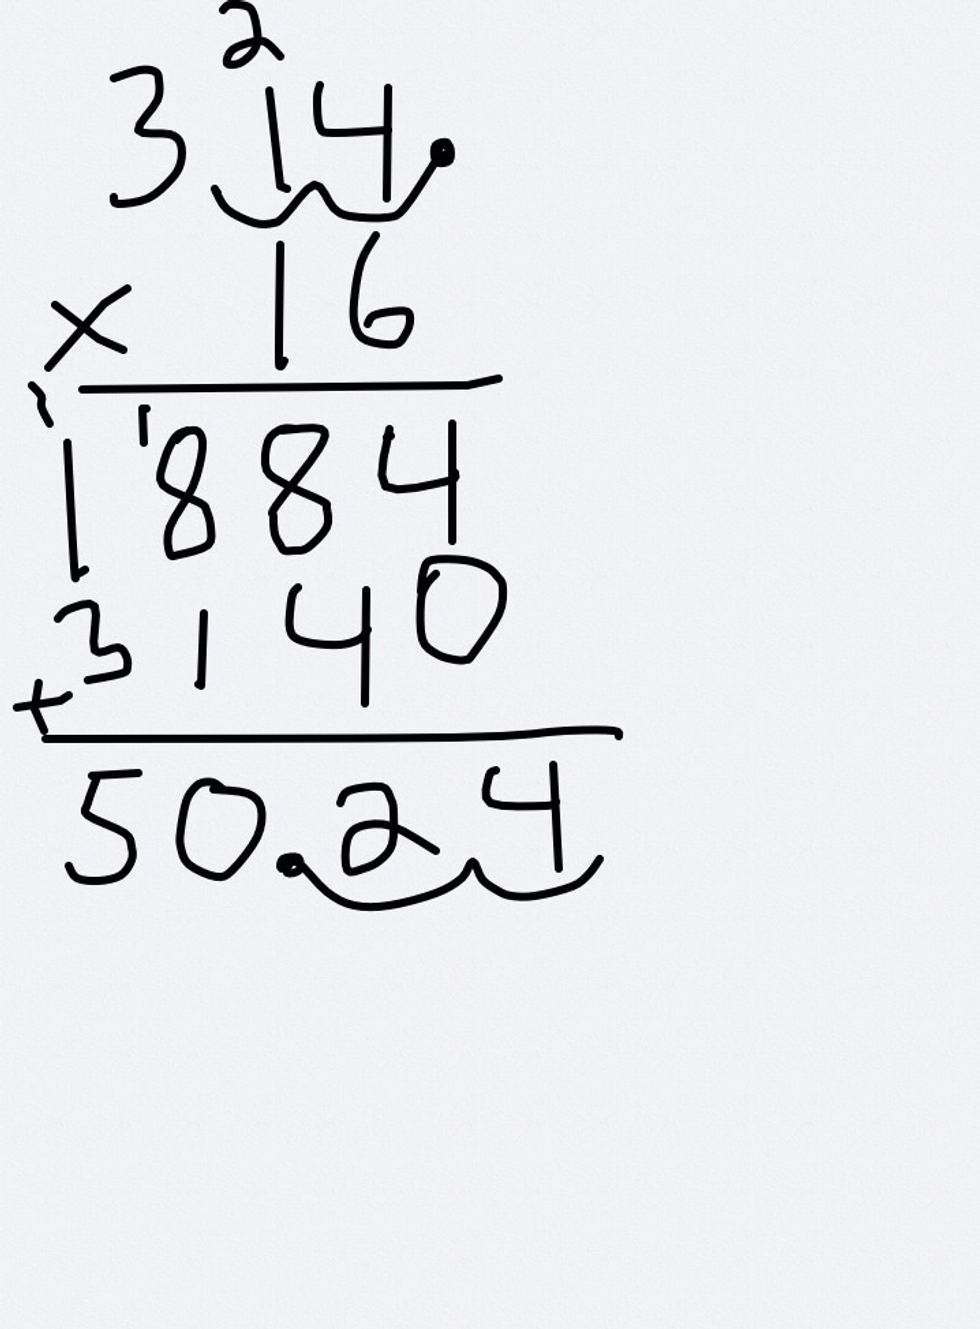 2
314.
× 16
1 1
1884
+ 3140
50.24